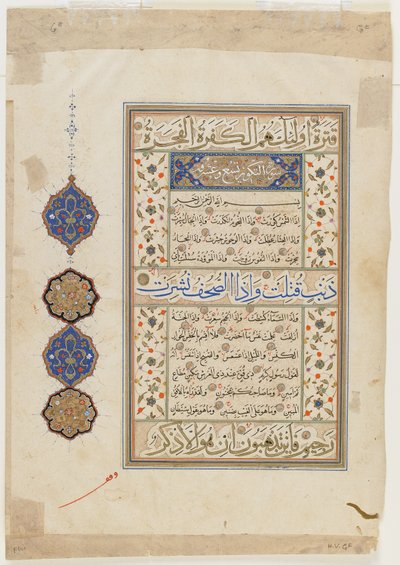 قترة اولئك هم الكفرة الفجرة
سورة التكوير تسع وعشرون
بسم الله الرحمن الرحيم
اذا الشمس كورت واذا النجوم انكدرت واذا الجبال سيرت
واذا العشار عطلت واذا الوحوش حشرت واذا البحار
سجرت واذا النفوس زوجت واذا الموؤدة سئلت باي
ذنب قتلت واذا الصحف نشرت
واذا السماء كشطت واذا الجحيم سعرت واذا الجنة
ازلفت علمت نفس ما احضرت فلا اقسم بالخنس الجوار
الكنس والليل اذا عسعس والصبح اذا تنفس انه
لقول رسول كريم ذي قوة عند ذي العرش مكين مطاع
ثم امين وما صاحبكم بمجنون ولقد رآه بالافق
المبين وما هو على الغيب بضنين وما هو بقول شيطان
رجيم فاين تذهبون ان هو الا ذكر
وقف